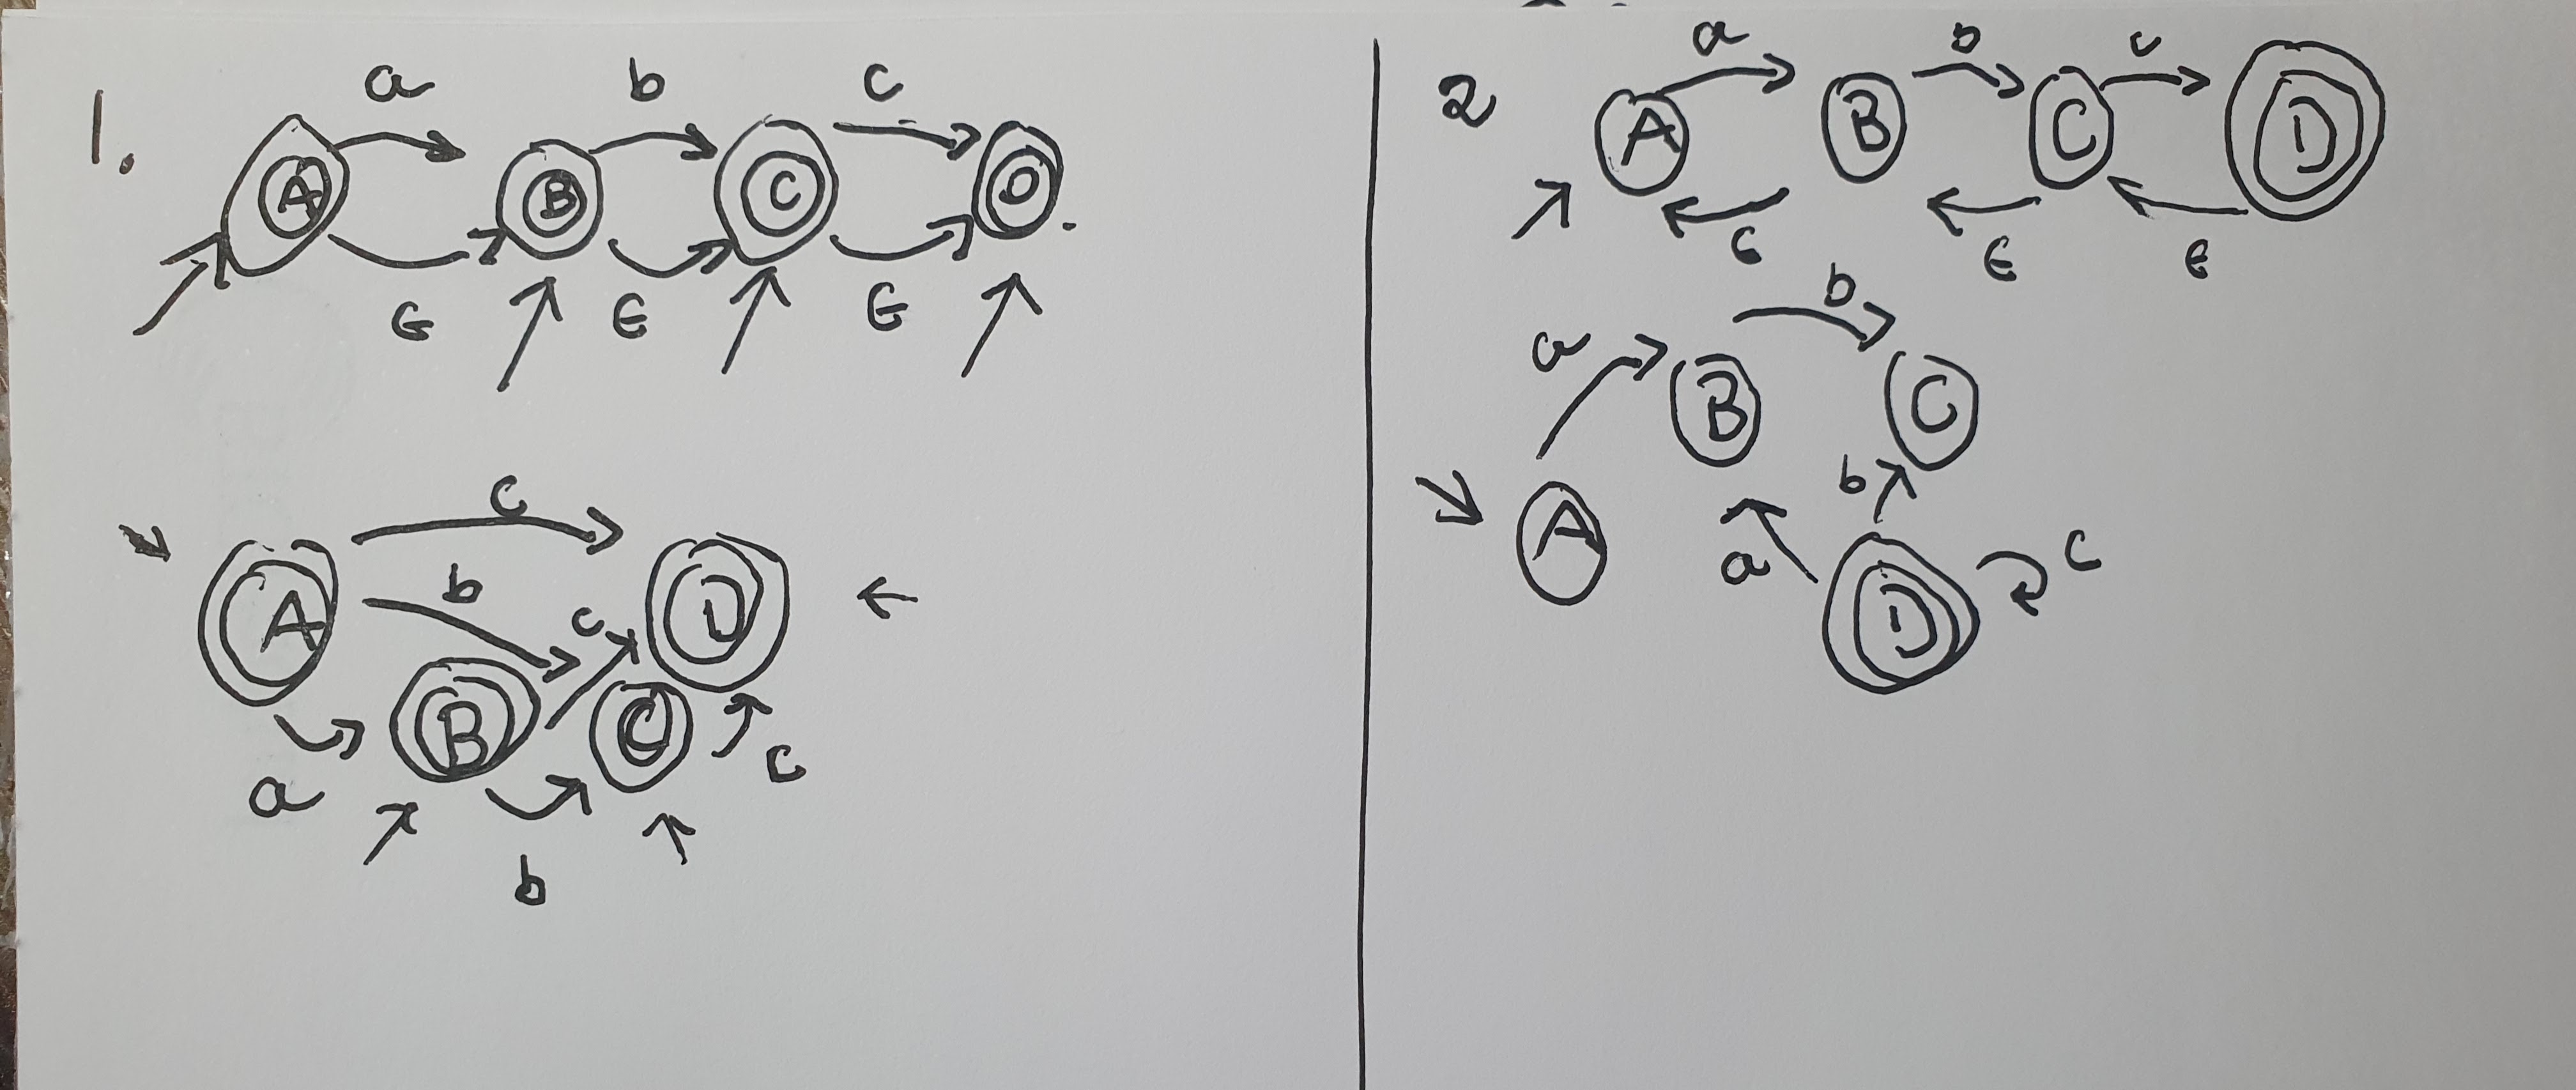 1.
a b c
A B C D
ϵ ϵ ϵ
c
A b c D
B C c
a
b
2
a b c
A B C D
ϵ ϵ ϵ
b
a B C
A b
a D c